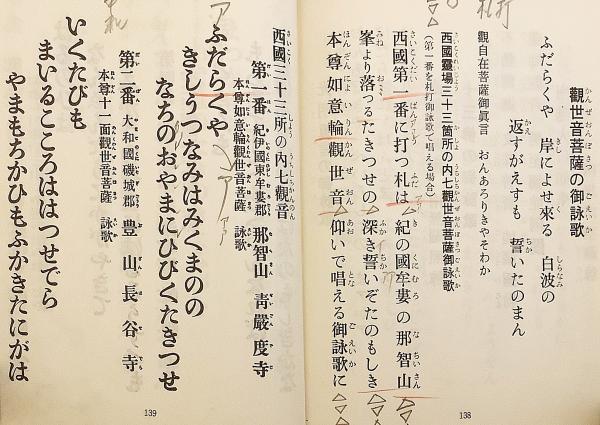 觀世音菩薩の御詠歌
ふだらくや 岸によせ來る 白波の
返すがえすも 誓いたのまん
觀自在菩薩御眞言 おんあろりきやそわか
西國靈場三十三箇所の内七觀世音菩薩御詠歌
(第一番を札打御詠歌で唱える場合)
西國第一番に打つ札は 紀の國牟婁の那智山
峯より落つるたきつせの 深き誓いぞたのもしき
本尊如意輪觀世音 仰いで唱える御詠歌に
札打
138
西國三十三所の内七觀音
第一番 紀伊國東牟婁郡 那智山 靑嚴度寺
本尊如意輪觀世音菩薩 詠歌
ふだらくや
きしうつなみはみくまのの
なちのおやまにひびくたきつせ
第二番 大和國磯城郡 豊山 長谷寺
本尊十一面觀世音菩薩 詠歌
いくたびも
まいるこころははつせでら
やまもちかひもふかきたにがは
札
139